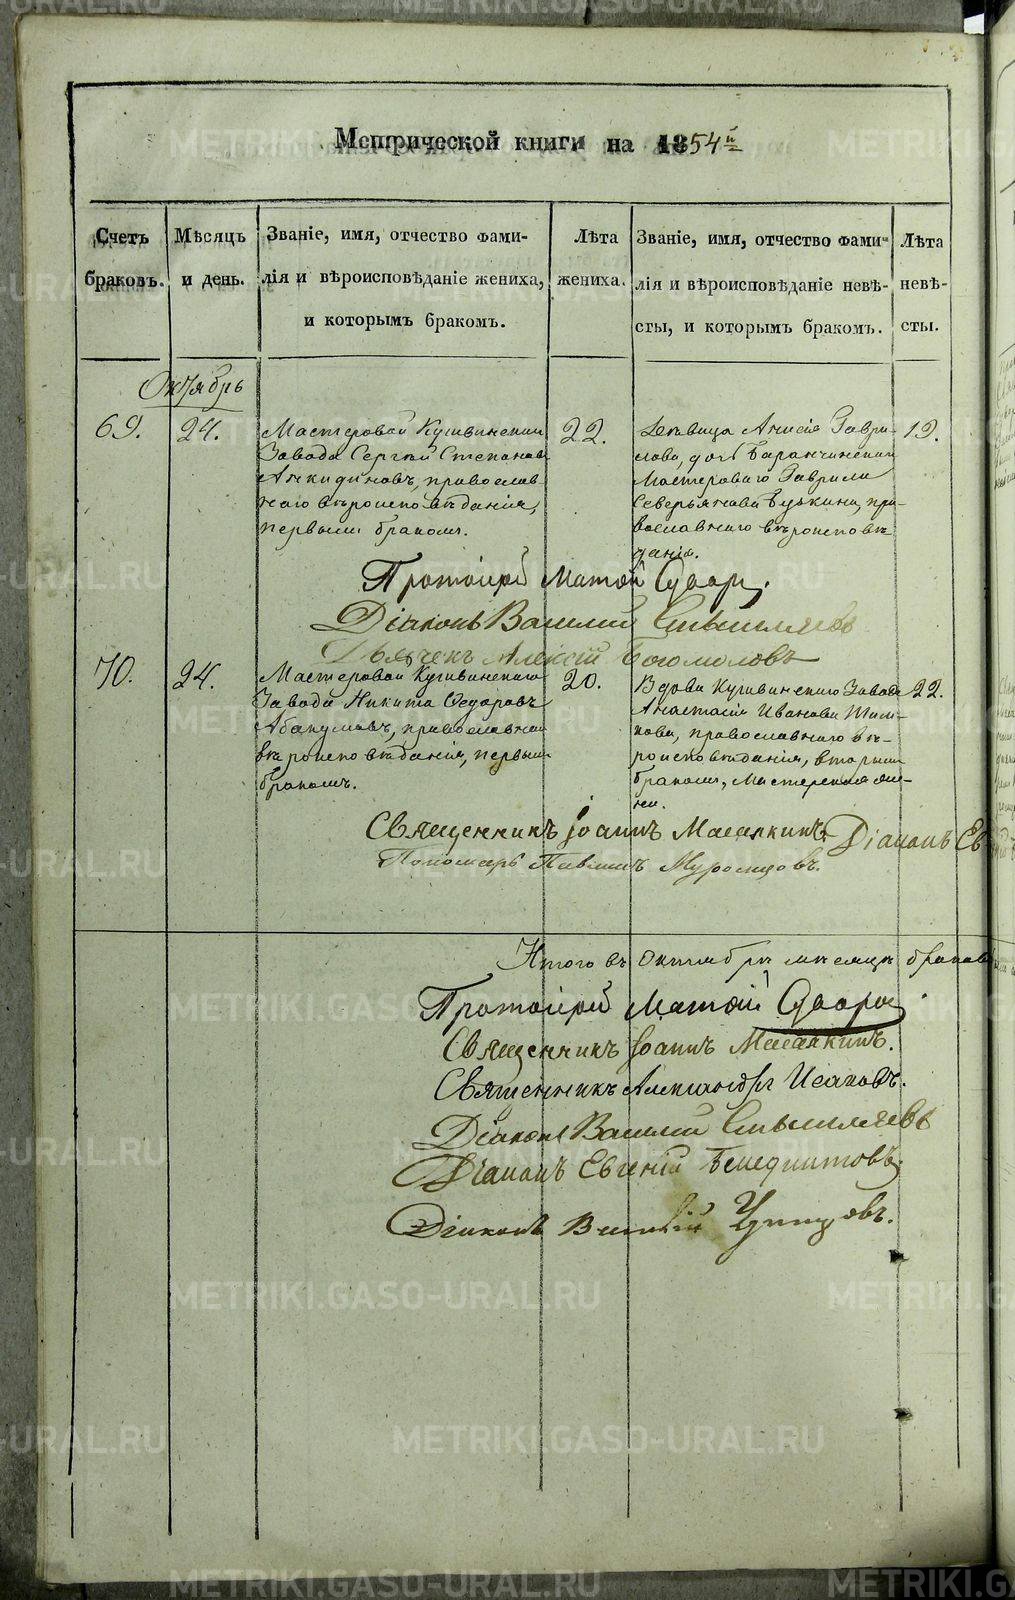 Метрической книги на 1854й
Счетъ браковъ.
Мѣсяцъ и день.
Званіе, имя, отчество фами-
лія и вѣроисповѣданіе жениха,
и которымъ бракомъ.
Лѣта жениха.
Званіе, имя, отчество фами-
лія и вѣроисповѣданіе невѣ-
сты, и которымъ бракомъ.
Лѣта невѣ-
сты.
Октябрь
69.
24.
Мастеровой Кушвинскаго
Завода Сергѣй Степановъ
православ
наго вѣроисповѣданія,
первымъ бракомъ.
22.
Дѣвица Анисія Гаври-
лова, дочь Баранчинскаго
Мастероваго Гаврила
Северьянова пра-
вославнаго вѣроисповѣ
данія.
19.
Протоіерей
Діаконъ Василій
Дьячекъ Алексій Богомоловъ
70.
24.
Мастеровой Кушвинскаго
Завода Никита Ѳедоровъ
Абакумовъ, православнаго
вѣроисповѣданія, первымъ
бракомъ.
20.
Вдова Кушвинскаго Завода
Анастасія Иванова
православнаго вѣ-
роисповѣданія, вторымъ
бракомъ, Мастерская же-
на.
22.
Священникъ Іоаннъ Масалкинъ. Діаконъ Ев
Пономарь Муромцовъ.
Итого въ октябрѣ мѣсяцѣ браков
Протоіерей
Священникъ Іоаннъ Масалкинъ.
Священникъ Александръ Исаковъ.
Діаконъ Василій
Діаконъ Евгеній Бенедиктовъ.
Діаконъ
METRIKI.GASO-URAL.RU